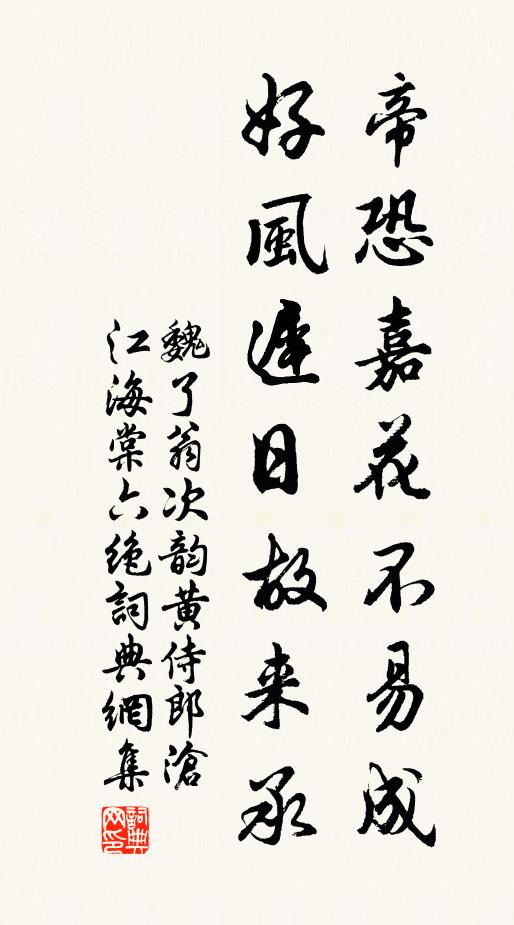 帝恐嘉花不易成
好風遲日故来承
魏了翁次韵黄侍郎滄
江海棠六絶詞典網集
詞典網印